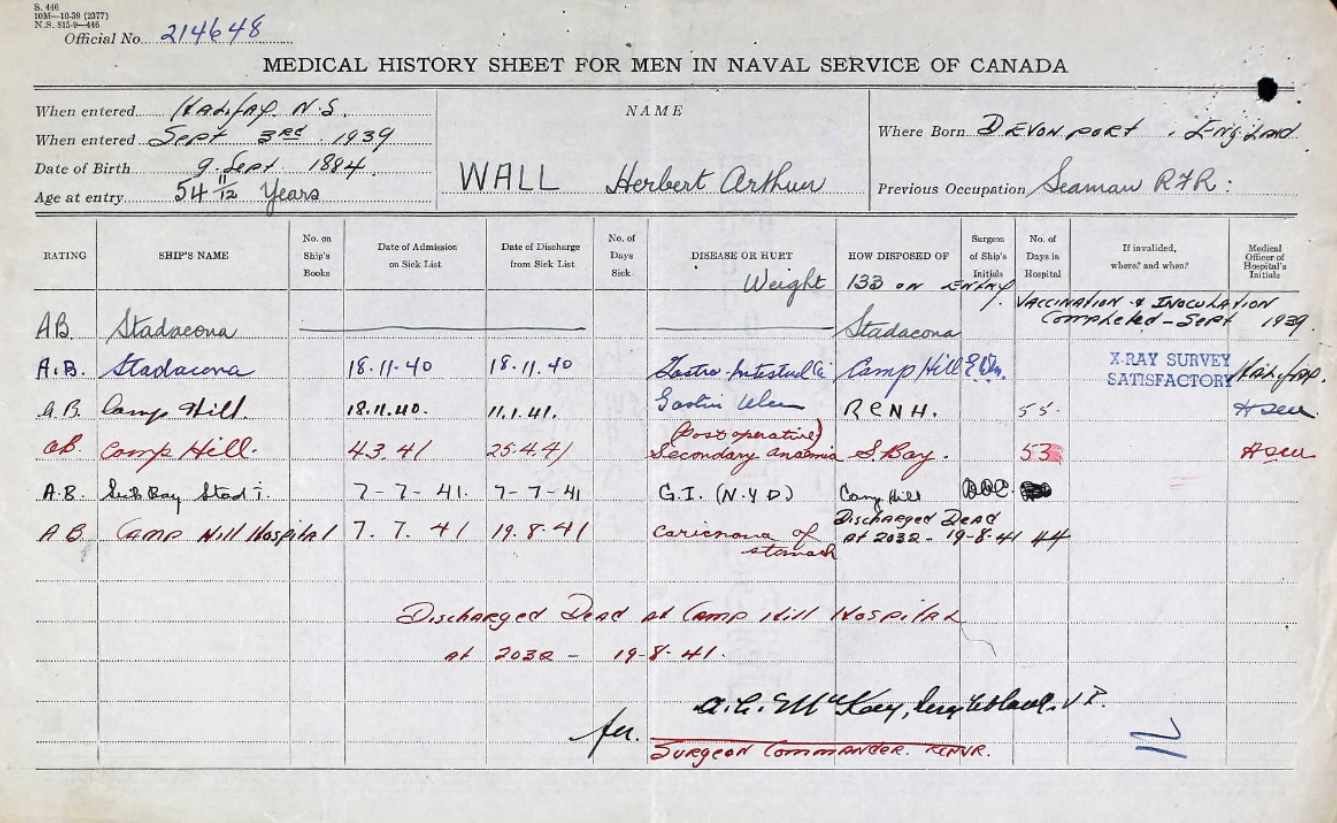 S. 446
10M—10-39 (2377)
N.S. 815-9—446
Official No. 214648
MEDICAL HISTORY SHEET FOR MEN IN NAVAL SERVICE OF CANADA
When entered Halifax N.S.
When entered Sept 3rd. 1939
Date of Birth 9. Sept. 1884.
Age at entry 54 11/12 Years
NAME
WALL Herbert Arthur
Where Born DEVONPORT, England
Previous Occupation Seaman RFR:
RATING SHIP'S NAME No. on Ship's Books Date of Admission on Sick List Date of Discharge from Sick List No. of Days Sick DISEASE OR HURT HOW DISPOSED OF Surgeon of Ship's Initials No. of Days in Hospital If invalided, where? and when? Medical Officer of Hospital's Initials
Weight 133 ON ENTRY.
VACCINATION & INOCULATION
Completed - Sept 1939.
AB. Stadacona Stadacona
A.B. Stadacona 18.11.40 18.11.40 Gastro Camp Hill X-RAY SURVEY SATISFACTORY Halifax.
A.B. Camp Hill. 18.11.40. 11.1.41. Ulcer RCNH. 55.
(Post operative)
AB. Camp Hill. 4.3.41 25.4.41 Secondary anaemia S. Bay. 53
A.B. Bay Stad I. 7-7-41. 7-7-41 G.I. (N.Y.D) Camp Hill
Discharged Dead
AB. Camp Hill Hospital 7.7.41 19.8.41 Carcinoma of at 2032 - 19-8-41 44
stomach
Discharged Dead at Camp Hill Hospital
at 2032 - 19-8-41.
A. McKay,
for.
Surgeon Commander. RCNVR.